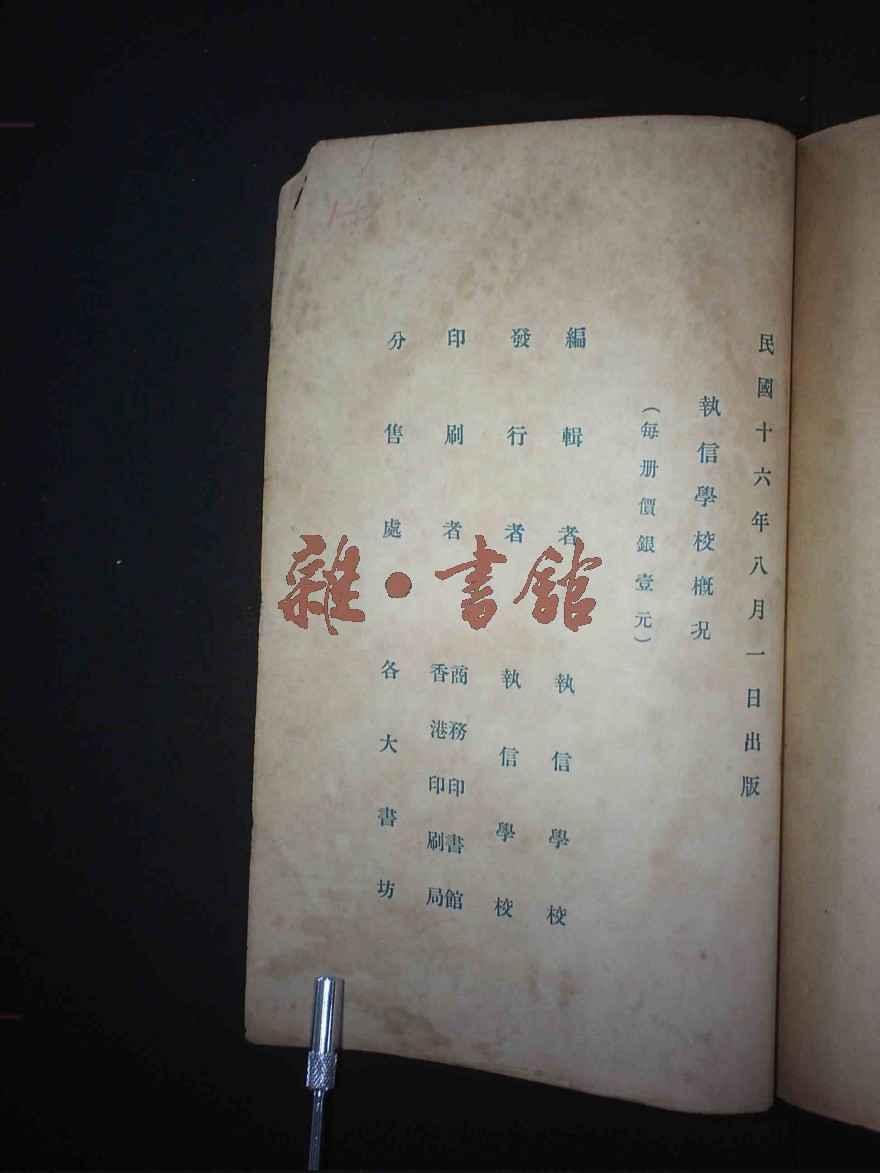 民國十六年八月一日出版
執信學校概況
(每册價銀壹元)
編輯者 執信學校
發行者 執信學校
印刷者 商務印書館
香港印刷局
分售處 各大書坊
雜·書館